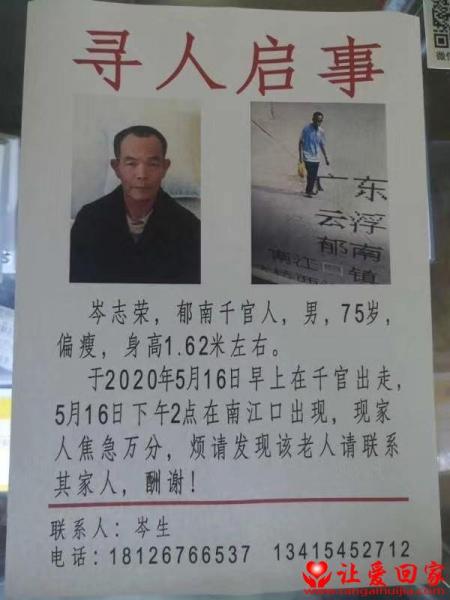 寻人启事
广东
云浮
郁南
南江口镇
岑志荣，郁南千官人，男，75岁，
偏瘦，身高1.62米左右。
于2020年5月16日早上在千官出走，
5月16日下午2点在南江口出现，现家
人焦急万分，烦请发现该老人请联系
其家人，酬谢！
联系人：岑生
电话：18126766537 13415452712
让爱回家
www.rangaihuijia.com